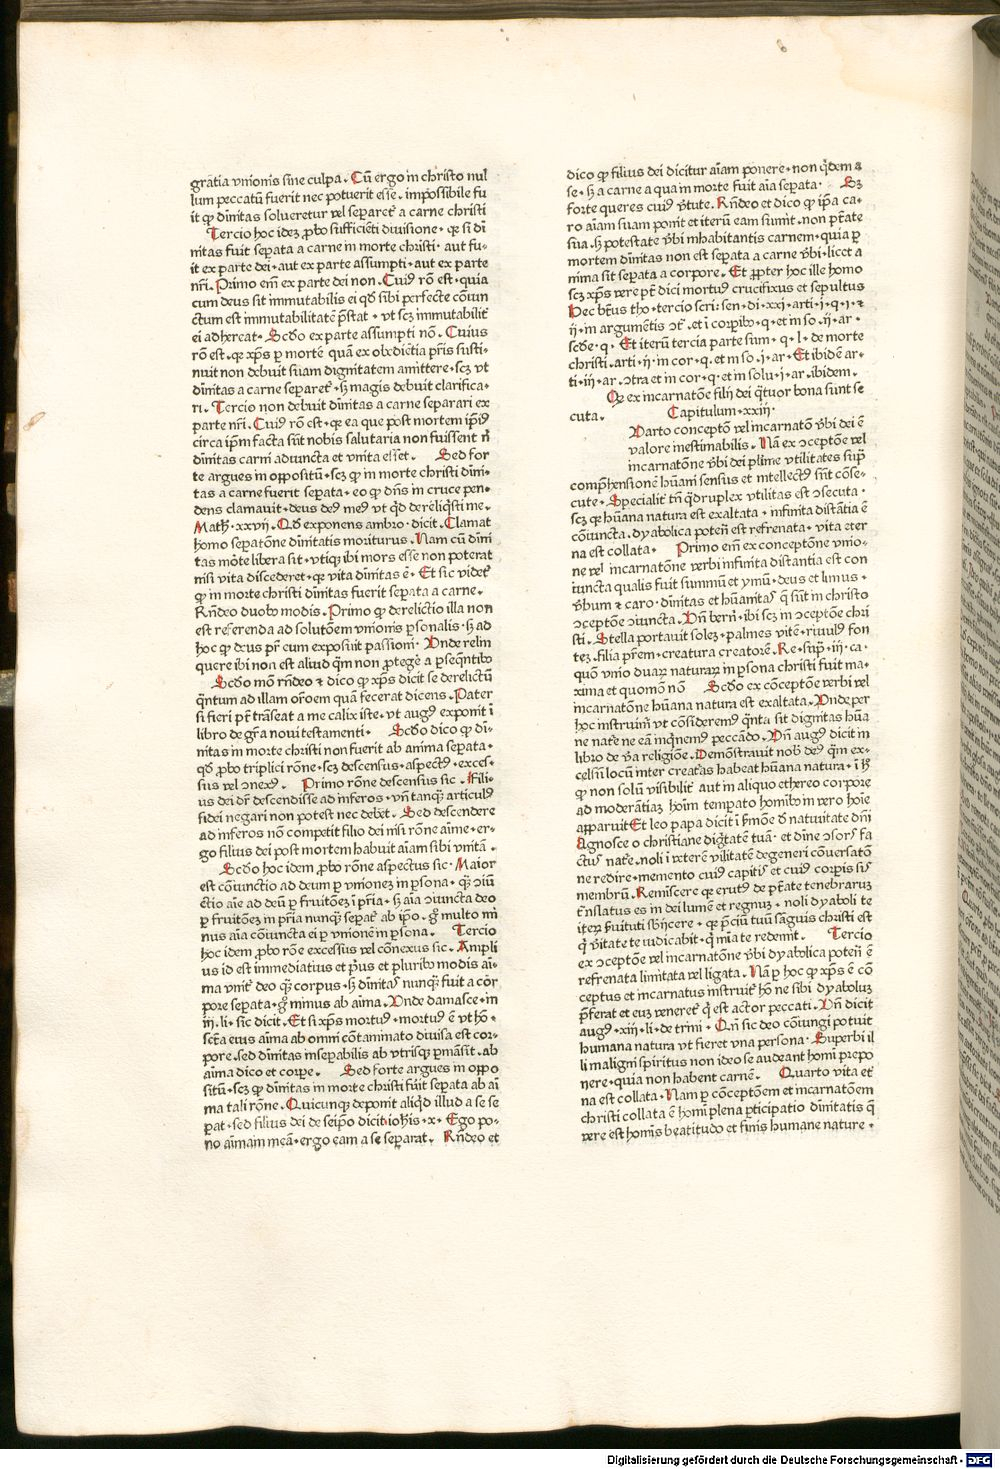 gratia vnionis sine culpa. Cũ ergo in christo nul
lum peccatũ fuerit nec potuerit esse. impossibile fu
it ꝙ diuinitas solueretur vel separet᷑ a carne christi
Tercio hoc idez ꝓbo sufficiẽti diuisione. qꝛ si di
nitas fuit sepata a carne in morte christi. aut fu
it ex parte dei. aut ex parte assumpti. aut ex parte
nr̃i. Primo em̃ ex parte dei non. Cuiꝰ rõ est. quia
cum deus sit immutabilis ei qd̓ sibi perfecte cõiun
ctum est immutabilitatẽ p̃stat. vt scz immutabilit᷑
ei adhereat. Scd̓o ex parte assumpti nõ. Cuius
rõ est. qꝛ xp̃s ꝑ mortẽ quã ex obediẽtia pr̃is susti
nuit non debuit suam dignitatem amittere. scz vt
diĩnitas a carne separet᷑. sꝫ magis debuit clarifica
ri. Tercio non debuit diĩnitas a carne separari ex
parte nr̃i. Cuiꝰ rõ est. qꝛ ea que post mortem ip̃iꝰ
circa ip̃m facta sũt nobis salutaria non fuissent ni
diĩnitas carni adiuncta et vnita esset. Sed for
te argues in oppositũ. scz ꝙ in morte christi diĩni
tas a carne fuerit sepata. eo ꝙ dñs in cruce pen
dens clamauit. deus deꝰ meꝰ vt qd̓ dereliq̃sti me.
Math̓. xxvij. Qd̓ exponens ambro. dicit. Clamat
homo sepatõne diĩnitatis moriturus. Nam cũ diĩni
tas mõte libera sit. vtiqꝫ ibi mors esse non poterat
nisi vita discederet. qꝛ vita diĩnitas ẽ. Et sic videt᷑
ꝙ in morte christi diĩnitas fuerit sepata a carne.
Rñdeo duobꝰ modis. Primo ꝙ derelictio illa non
est referenda ad solutõem vnionis ꝑsonalis. sꝫ ad
hoc ꝙ deus pr̃ eum exposuit passioni. Vnde relin
quere ibi non est aliud q̃m non ꝓtegẽ a ꝑseq̃ntibꝰ
Scd̓o mõ rñdeo ⁊ dico ꝙ xp̃s dicit se derelictũ
q̃ntum ad illam or̃oem quã fecerat dicens. Pater
si fieri pt̃ trãseat a me calix iste. vt augꝰ exponit ĩ
libro de gr̃a noui testamenti. Scd̓o dico ꝙ di
nitas in morte christi non fuerit ab anima sepata.
qd̓ ꝓbo triplici rõne. scz descensus. aspectꝰ. exces
sus vel ↄnexꝰ. Primo rõne descensus sic. Fili
us dei dr̃ descendisse ad inferos. vñ tanqꝫ articulꝰ
fidei negari non potest nec debet. Sed descendere
ad inferos nõ competit filio dei nisi rõne aĩme. er
go filius dei post mortem habuit aĩam sibi vnitã.
Scd̓o hoc idem ꝓbo rõne aspectus sic. Maior
est cõiunctio ad deum ꝑ vnionez in ꝑsona. qꝫ ↄiũ
ctio aĩe ad deũ ꝑ fruitõez ĩ pr̃ia. sꝫ aĩa ↄiuncta deo
ꝑ fruitõez in pr̃ia nunqꝫ sepat᷑ ab ip̃o. gͦ multo mi
nus aĩa cõiuncta ei ꝑ vnionẽm ꝑsona. Tercio
hoc idem ꝓbo rõe excessus vel cõnexus sic. Ampli
us id est immediatius et pͥus et pluribꝰ modis aĩ
ma vnit᷑ deo qꝫ corpus. sꝫ diĩnitaſ nunqꝫ fuit a cor
pore sepata. gͦ minus ab aĩma. Vnde damasce. in
iij. li. sic dicit. Et si xp̃s mortuꝰ. mortuꝰ ẽ vt hõ.
sct̃a eius aĩma ab omni cõtaminato diuisa est cor
pore. sed diĩnitas insepabilis ab vtrisqꝫ ꝑmãsit. ab
aĩma dico et corpe. Sed forte argues in oppo
situ. scz ꝙ diĩnitas in morte christi fuit sepata ab ai
ma tali rõne. Quicunqꝫ deponit aliqͥd illud a se se
pat. sed filius dei de seip̃o dicit ioh̓is. x. Ego po
no aĩmam meã. ergo eam a se separat. Rñdeo et
dico ꝙ filius dei dicitur aĩam ponere. non qͥdem a
se. sꝫ a carne a qua in morte fuit aĩa sepata. Sꝫ
forte queres cuiꝰ ṽtute. Rñdeo et dico ꝙ ip̃a ca
ro aĩam suam ponit et iterũ eam sumit. non pt̃ate
sua. sꝫ potestate ṽbi inhabitantis carnem. quia ꝑ
mortem diĩnitas non est sepata a carne ṽbi. licet a
nima sit sepata a corpore. Et ꝓpter hoc ille homo
scz xp̃s vere pt̃ dici mortuꝰ crucifixus et sepultus
Hec bt̃us tho. tercio scri. sen. di. xxi. arti. i. q. i. ⁊
ij. in argumẽtis ↄt̃. et ĩ corpibꝰ. q. et in so. ij. ar.
scd̓e. q. Et iterũ tercia parte sum. q. l. de morte
christi. arti. ij. in cor. q. et in so. i. ar. Et ibidẽ ar
ti. iij. ar. ↄtra et in cor. q. et in solu. i. ar. ibidem.
Qꝫ ex incarnatõe filij dei q̃tuor bona sunt se
cuta. Capitulum. xxiij.
Parto conceptõ vel incarnatõ ṽbi dei ẽ
valore inestimabilis. Nã ex ↄceptõe vel
incarnatõne ṽbi dei plime vtilitates sup̃
comp̃hensionẽ hũani sensus et intellectꝰ sũt cõse
cute. Specialit᷑ tñ qͣdruplex vtilitas est ↄsecuta.
scz qꝛ hũana natura est exaltata. infinita distãtia ẽ
cõiuncta. dyabolica poten̄ est refrenata. vita eter
na est collata. Primo em̃ ex conceptõne vnio
ne vel incarnatõne verbi infinita distantia est con
iuncta qualis fuit summũ et ymũ. deus et limus.
ṽbum ⁊ caro. diĩnitas et hũanitaſ q̃ sũt in christo
ↄceptõne ↄiuncta. Vñ bern̄. ibi scz in ↄceptõe chri
sti. Stella portauit solez. palmes vitẽ. riuulꝰ fon
tez. filia pr̃em. creatura creatorẽ. Re. sup̃. iij. ca.
quõ vnio duaꝝ naturaꝝ in ꝑsona christi fuit ma
xima et quomõ nõ Scd̓o ex cõceptõe verbi vel
incarnatõne hũana natura est exaltata. Vnde per
hoc instruim̃ vt cõsideremꝰ q̃nta sit dignitas hũa
ne nate᷑ ne eã inq̃nemꝰ peccãdo. Vñ augꝰ dicit in
libro de ṽa religiõe. Demõstrauit nob̓ deꝰ q̃m ex
celsũ locũ inter creat̃as habeat hũana natura. ĩ hͦ
ꝙ non solũ visibilit᷑ aut in aliquo ethereo corpore
ad moderãtiaz hoĩm temperato homĩbꝰ in vero hoĩe
apparuit Et leo papa dicit ĩ ẜmõe d̓ natiuitate dñi
Agnosce o christiane dig̃tatẽ tuã. et diĩne ↄsorſ fa
ctꝰ nate᷑. noli ĩ veterẽ vilitatẽ degeneri cõuersatõ
ne redire. memento cuiꝰ capitſ et cuiꝰ corpis sis
membrũ. Remiscere qꝛ erutꝰ de pt̃ate tenebraruz
trãslatus es in dei lumẽ et regnuz. noli dyaboli te
iteꝝ ẜuituti sb̓ijcere. qꝛ p̃ciũ tuũ sãguis christi est
qͥ ṽitate te iudicabit. qͥ mĩa te redemit. Tercio
ex ↄceptõe vel incarnatõne ṽbi dyabolica poten̄ ẽ
refrenata limitata vel ligata. Nã ꝑ hoc ꝙ xp̃s ẽ cõ
ceptus et incarnatus instruit᷑ hõ ne sibi dyaboluz
p̃ferat et euz veneret᷑ qͥ est actor peccati. Vñ dicit
augꝰ. xiij. li. de trini. Qñ sic deo cõiungi potuit
humana natura vt fieret vna persona. Superbi il
li maligni spiritus non ideo se audeant homi prepo
nere. quia non habent carnẽ. Quarto vita et᷑
na est collata. Nam ꝑ cõceptõem et incarnatõem
christi collata ẽ homĩ plena ꝑticipatio diĩnitatis q̃
vere est homĩs beatitudo et finis humane nature.
Digitalisierung gefördert durch die Deutsche Forschungsgemeinschaft - DFG